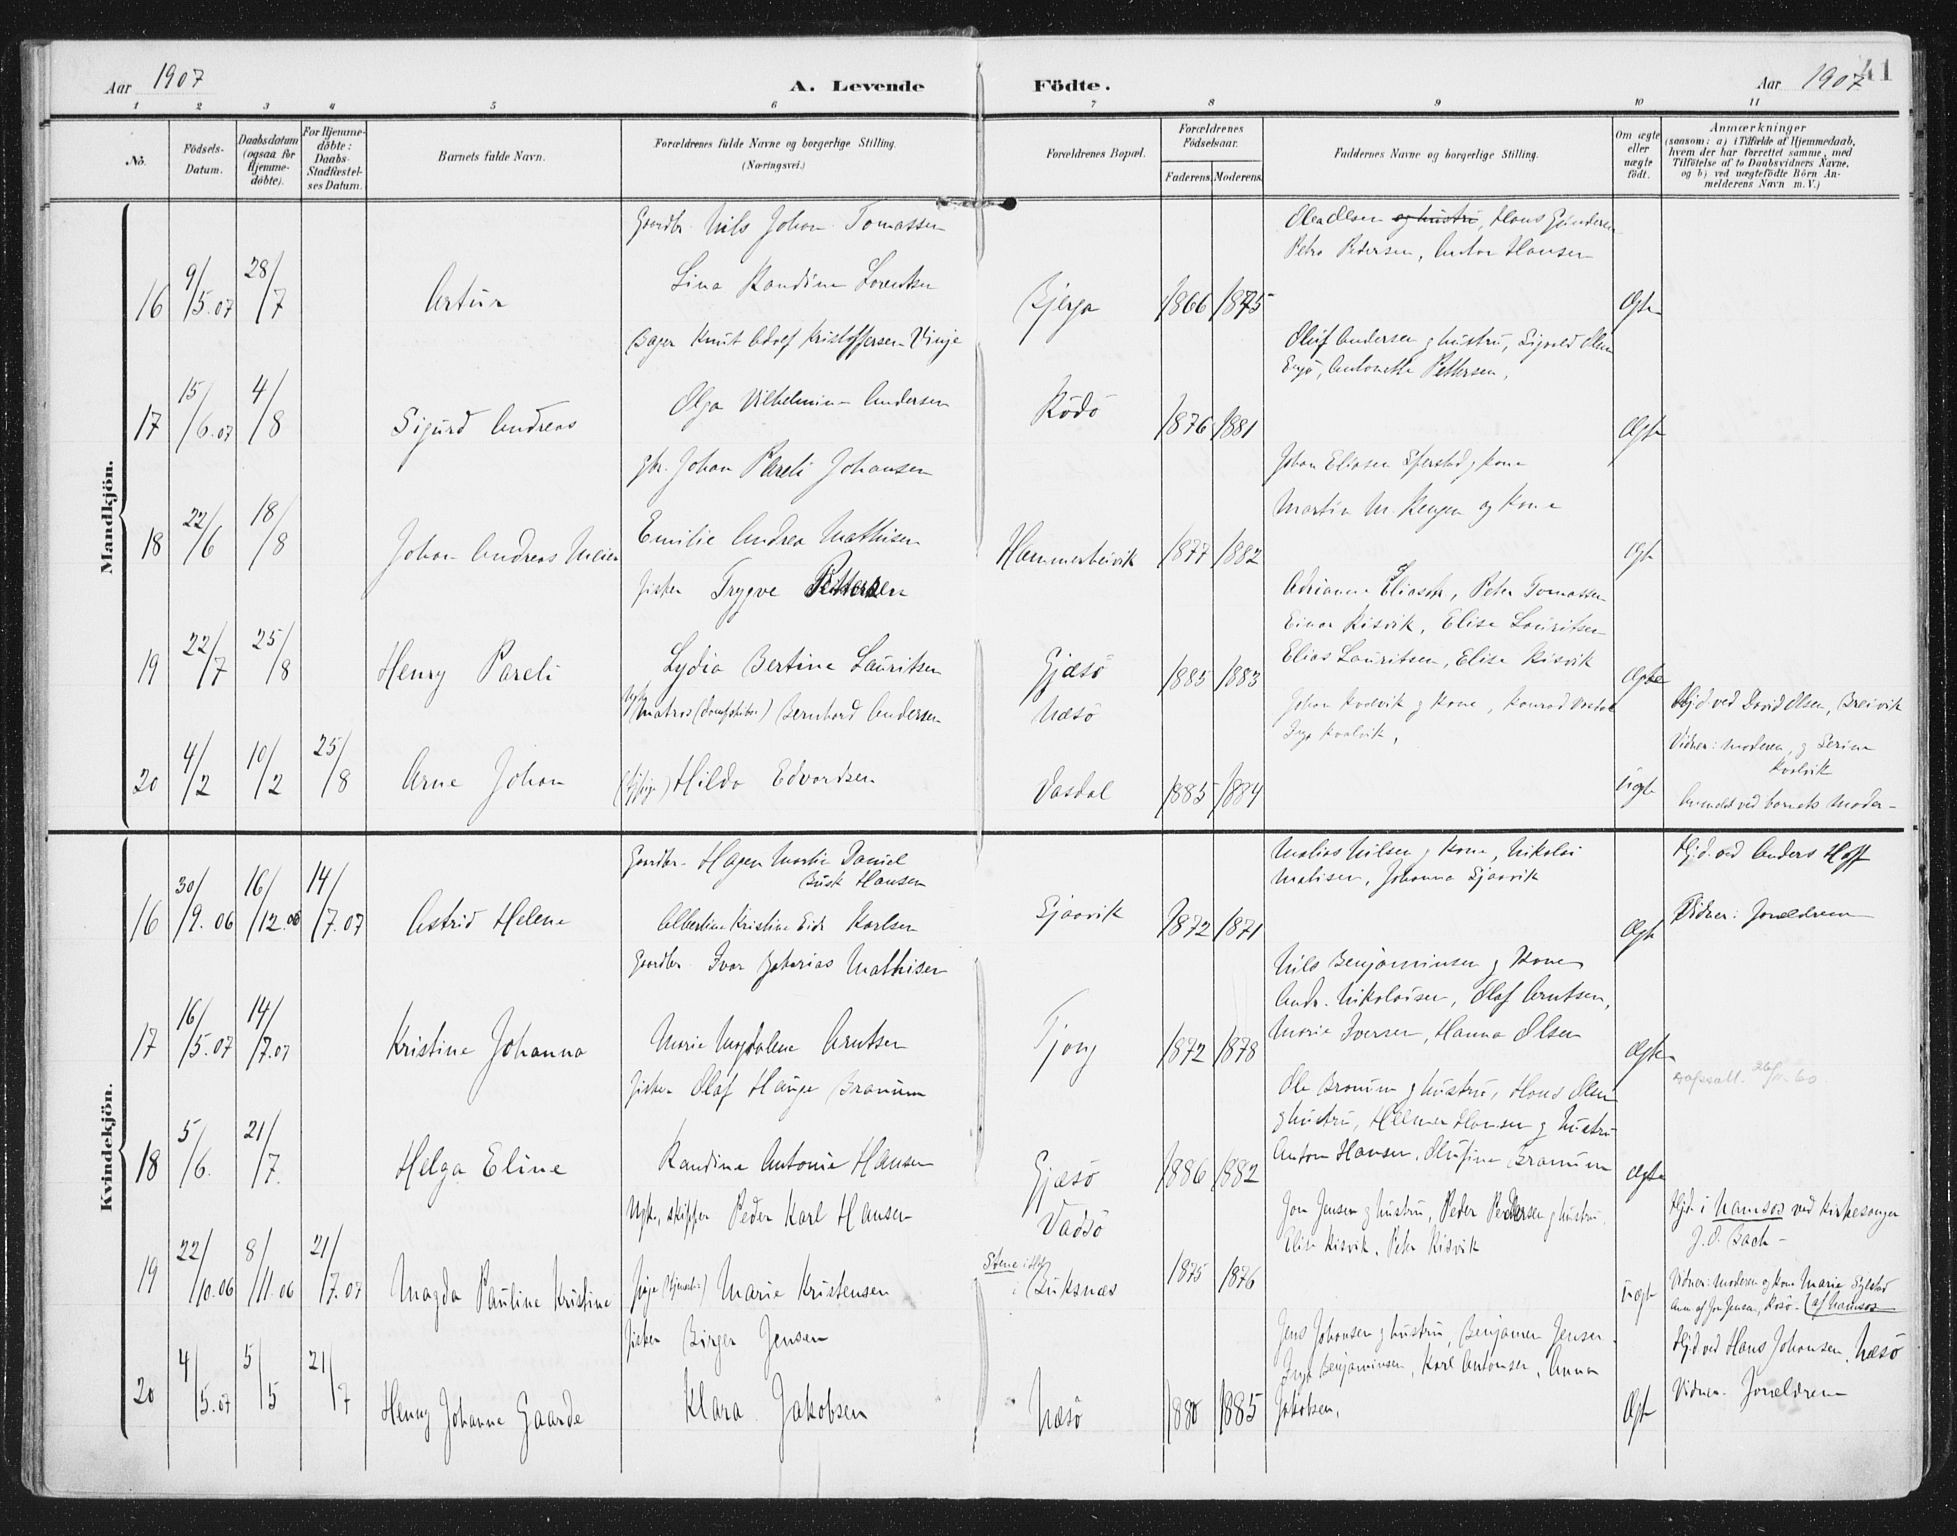 Aar 1907
A. Levende Födte.
Aar 1907
41
1 2 3 4 5 6 7 8 9 10 11
No.
Födsels-Datum.
Daabsdatum (ogsaa for Hjemme-döbte).
For Hjemme-döbte: Daabs-Stadfæstel-ses Datum.
Barnets fulde Navn.
Forældrenes fulde Navne og borgerlige Stilling.
(Næringsvei.)
Forældrenes Bopæl.
Forældrenes Födselsaar.
Faderens. Moderens.
Faddernes Navne og borgerlige Stilling.
Om ægte eller uægte födt.
Anmærkninger
(saasom: a) i Tilfælde af Hjemmedaab,
hvem der har forrettet samme, med
Tilföielse af to Daabsvidners Navne,
og b) ved uægtefödte Börn An-
melderens Navn m. V.)
Mandkjön.
Gaardbr. Nils Johan Tomassen
Olea Olsen og hustru, Hans Gundersen
Petra Pedersen, Anton Hansen
16 9/5.07 28/7 Artur Lina Randine Lorentsen Bjerga 1866 1875 Ægte
Bager Knut Adolf Kristoffersen Vinje
Oluf Andersen g hustru, Sigvald Olsen
Engö, Antonette Pettersen,
17 15/6.07 4/8 Sigurd Andreas Olga Vilhelmine Andersen Rödö 1876 1881 Ægte
Gbr. Johan Pareli Johansen
Johan Eliasen g kone
Martin M. Rengen og kone
18 22/6 18/8 Johan Andreas Meier Emilie Andrea Mathisen 1877 1882 Ægte
Fisker Trygve Pettersen
Adrianna Eliasen, Peter Tomassen
Einar Risvik, Elise Lauritsen
Elias Lauritsen, Elise Risvik
19 22/7 25/8 Henry Pareli Lydia Bertine Lauritsen Gjæsö 1885 1883 Ægte
Ugk. Matros Bernhard Andersen Næsö
Johan Kvalvik g kone, Konrad
Inga Kvalvik,
Hjd ved David Olsen, Breivik
Vidner: moderen, g Serine Kvalvik
20 4/2 10/2 25/8 Arne Johan Hilda Edvardsen Vasdal 1885 1884 Uægte
Anmeldt ved barnets moder -
Kvindekjön.
Gaardbr. Hagen Martin Daniel
Busk Hansen
Matias Nilsen g kone, Nikolai
Matisen, Johanna Sjaavik
Hjd. ved Anders Hoff
16 30/9.06 16/12.06 14/7.07 Astrid Helene Albertine Kristine Eide Karlsen Sjaavik 1872 1871 Ægte
Vidner: Forældrene
Gaardbr. Ivar Zakarias Mathisen
Nils Benjaminsen g kone
Andr. Nikolaisen, Olaf Arntsen,
Marie Iversen, Hanna Olsen
17 16/5.07 14/7.07 Kristine Johanna Marie Magdalene Arntsen Tjong 1872 1878 Ægte
Fisker Olaf Hauge Branum
Ole Branum g hustru, Hans Olsen
g hustru, Helmer Hansen g hustru
Anton Hansen, Olufine Branum
18 5/6. 21/7. Helga Eline Randine Antonie Hansen Gjæsö 1886 1882 Ægte
Ugk., skipper Peder Karl Hansen Vadsö
Jon Jensen g hustru, Peder Pedersen g hustru.
Elise Risvik, Peter Risvik
Hjd. i Namsos ved Kirkesanger
J. O. Bach -
19 22/10.06 8/11.06 21/7.07 Magda Pauline Kristine Pige Marie Kristensen Buksnæs 1875 1876 Uægte
Vidner: moderen og kone Marie
Anm. af Jon Jensen, Rösö - (af Namsos
Fisker Birger Jensen
Jens Johansen g hustru, Benjamin Jensen.
Inga Benjaminsen, Karl Antonsen, Anna
Jakobsen,
20 4/5.07 5/5 21/7 Henny Johanne Gaarde Klara Jakobsen Næsö 1880 1885 Ægte
Hjd ved Hans Johansen, Næsö
Vidner. Forældrene